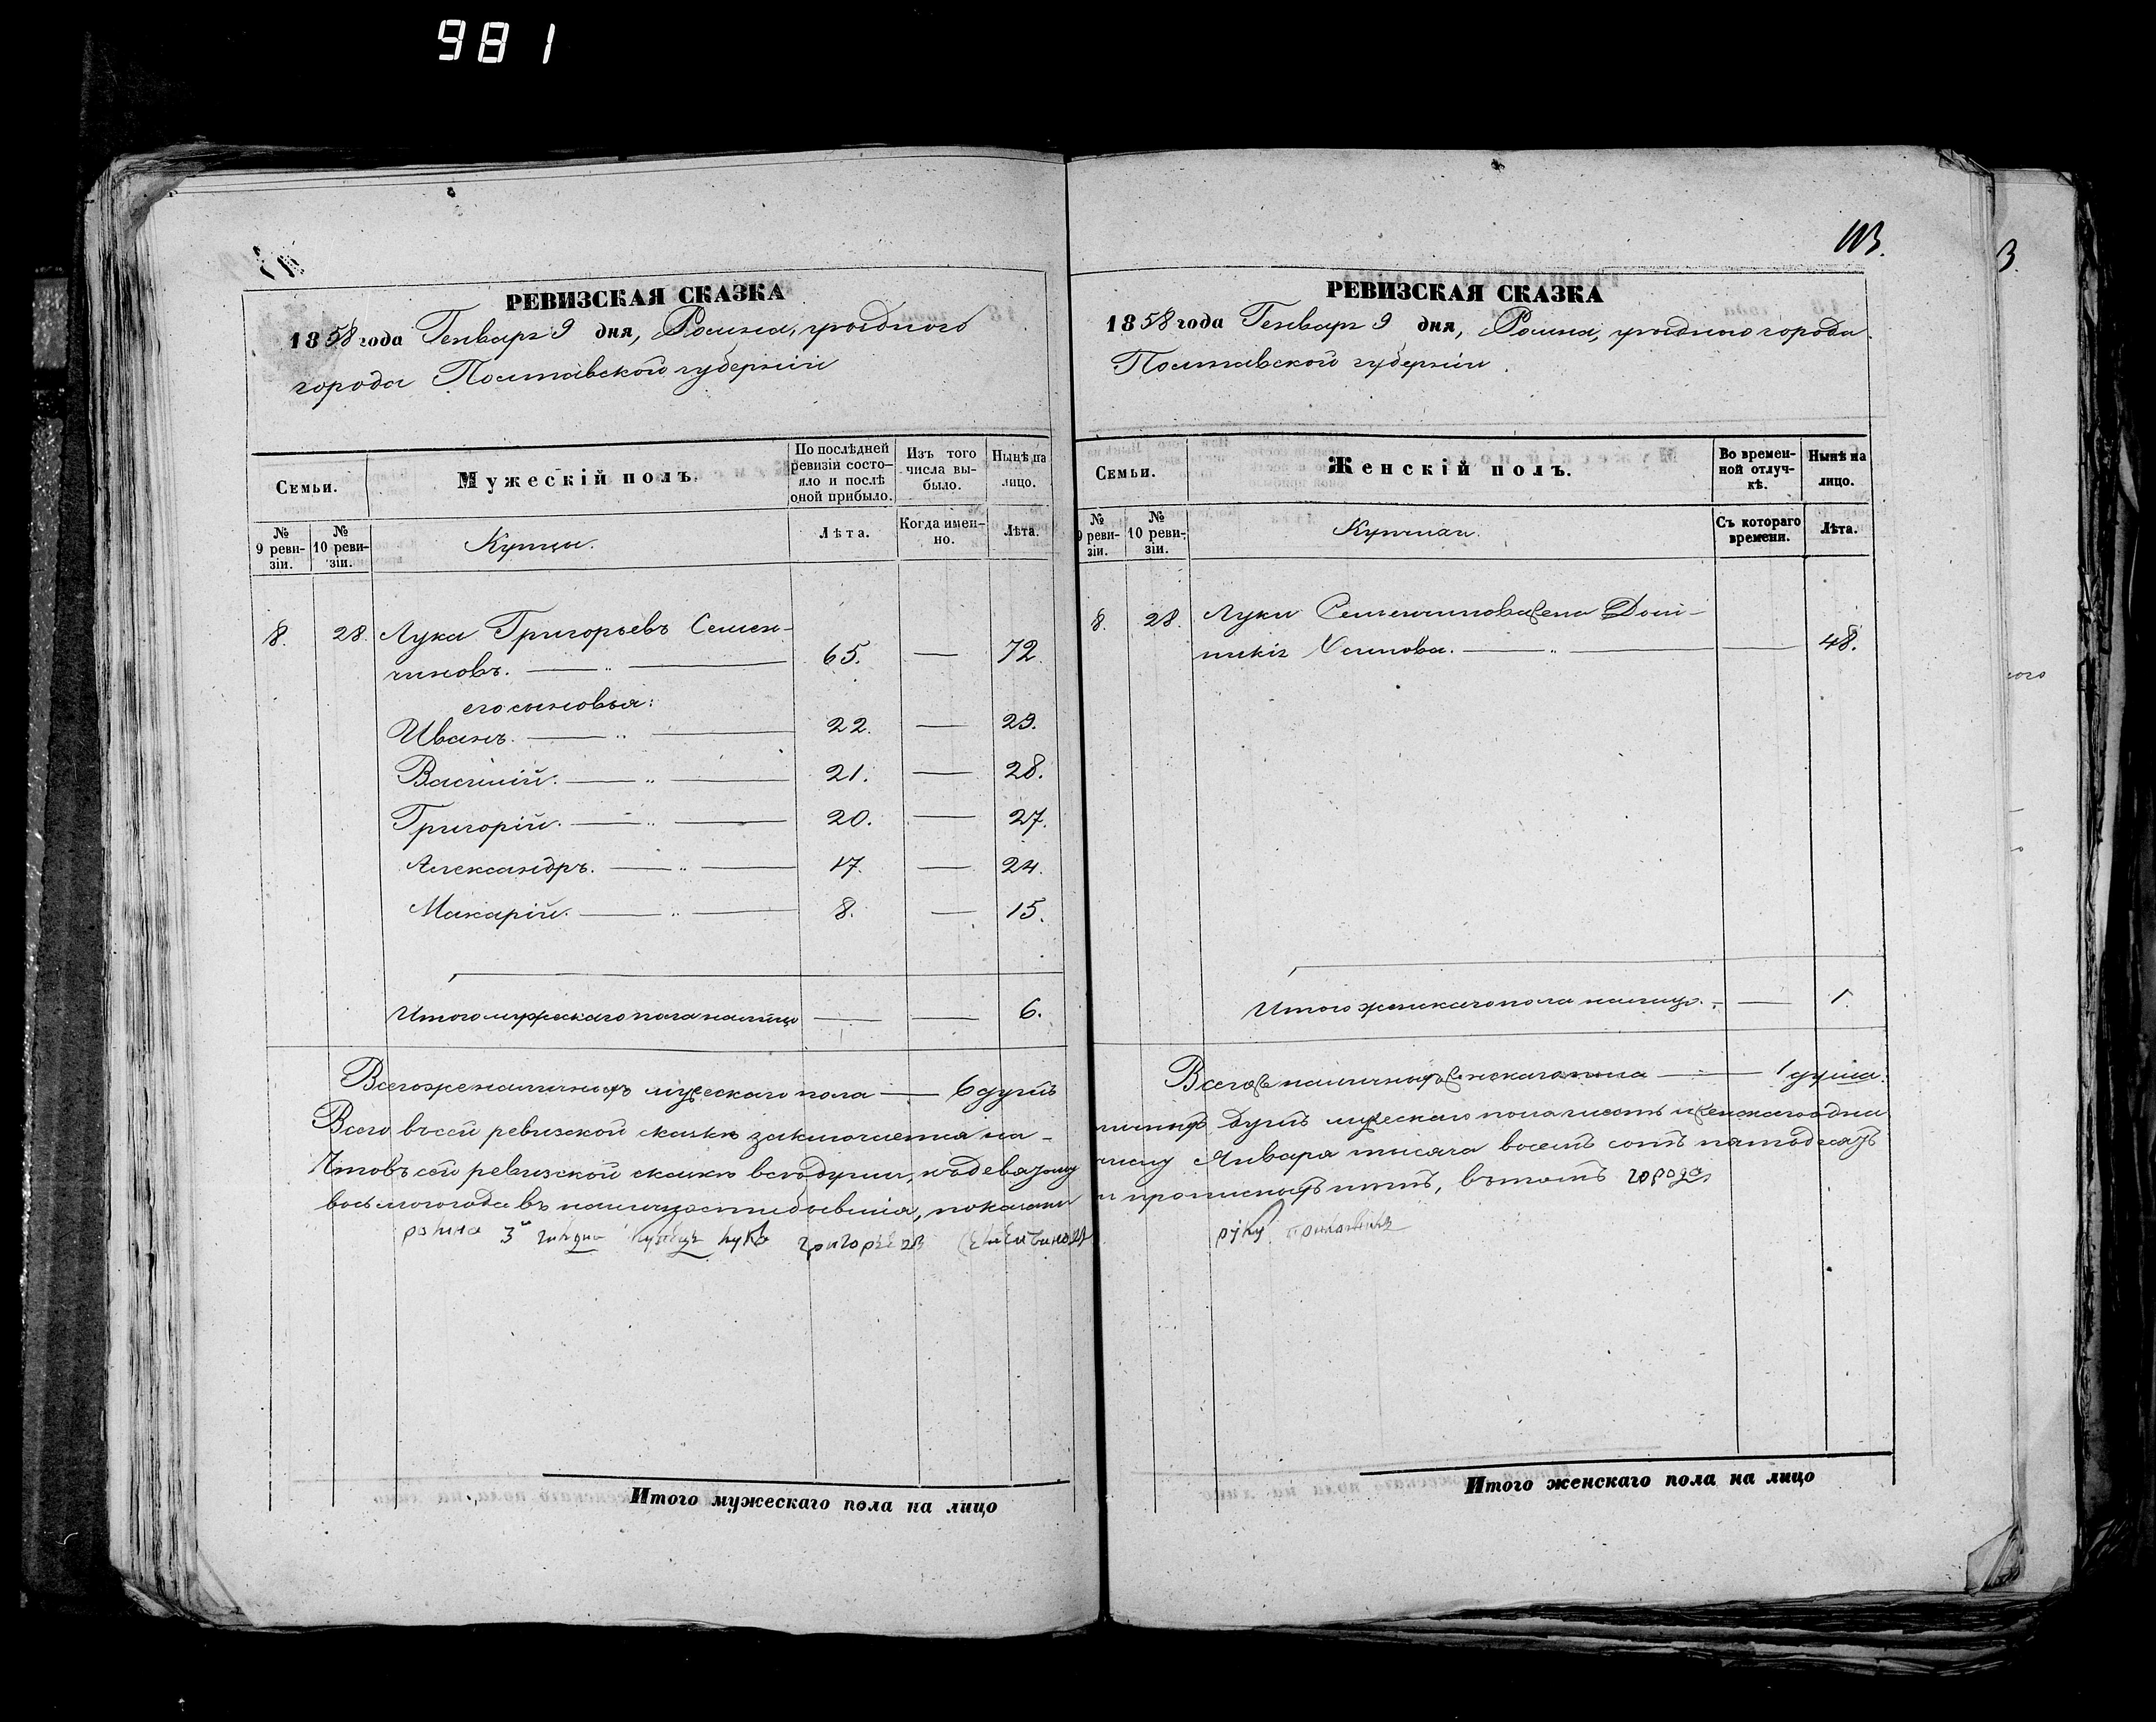 981
РЕВИЗСКАЯ СКАЗКА
1858 года Генваря 9 дня, Ромна, уѣзднаго
города Полтавской губерніи
Семьи.
Мужескій полъ.
По послѣдней ревизіи состояло и послѣ оной прибыло.
Изъ того числа выбыло.
Нынѣ на лицо.
№ 9 ревизіи.
№ 10 ревизіи.
Купцы.
Лѣта.
Когда именно.
Лѣта.
8. 28. Лука Григорьевъ Семен-
чиновъ. 65. — 72.
его сыновья:
Иванъ. 22. — 29.
Василій. 21. — 28.
Григорій. 20. — 27.
Александръ. 17. — 24.
Макарій. 8. — 15.
Итого мужескаго пола налицо — — 6.
Всего же наличныхъ мужескаго пола — 6 душъ
Всего въ сей ревизской сказкѣ заключается на-
Что въ сей ревизской сказкѣ всѣ души, къ девятому
восьмого года въ наличности бывшія, показаны
3й гильдіи купецъ лука григорьевъ
Итого мужескаго пола на лицо
113.
РЕВИЗСКАЯ СКАЗКА
1858 года Генваря 9 дня, Ромна, уѣзднаго города
Полтавской губерніи.
Семьи.
Женскій полъ.
Во временной отлучкѣ.
Нынѣ на лицо.
№ 9 ревизіи.
№ 10 ревизіи.
Купчихи.
Съ котораго времени.
Лѣта.
8. 28. Луки Семенчинова жена Дом-
никія Осипова. — 48.
Итого женскаго пола налицо. — 1.
Всего же наличныхъ женскаго пола — 1 душа.
личныхъ душъ мужескаго пола шесть и женскаго одна
числу Января тысяча восемь сотъ пятьдесятъ
и прописныхъ нѣтъ, въ томъ города
руку приложилъ
Итого женскаго пола на лицо
3.